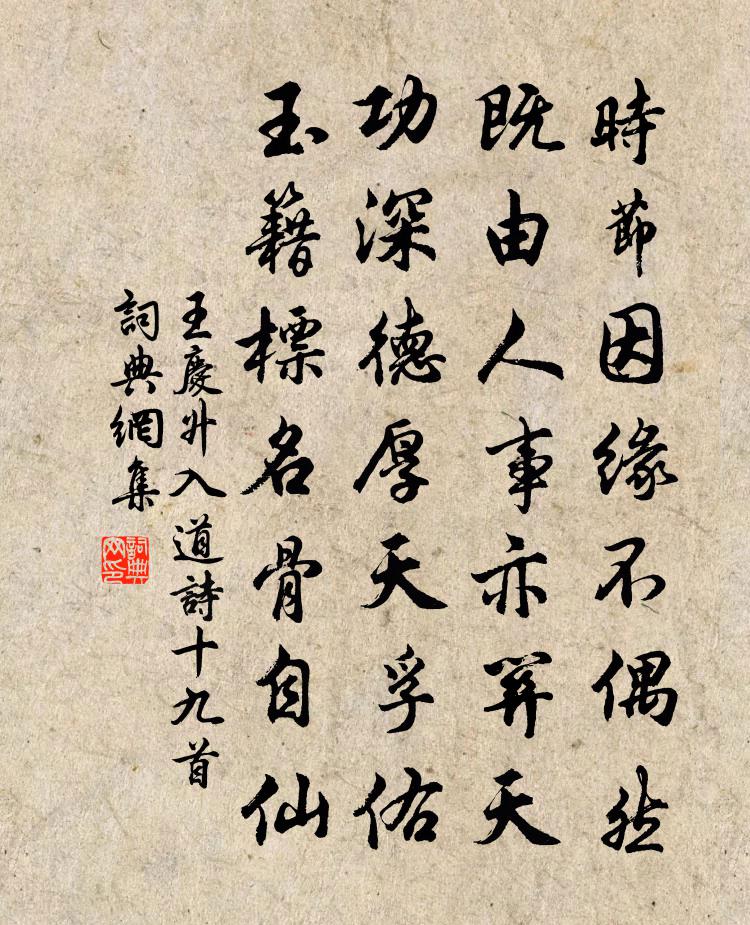 時節因緣不偶然
既由人事亦關天
功深德厚天孚佑
玉籍標名骨自仙
王慶升入道詩十九首
詞典網集
詞典网印